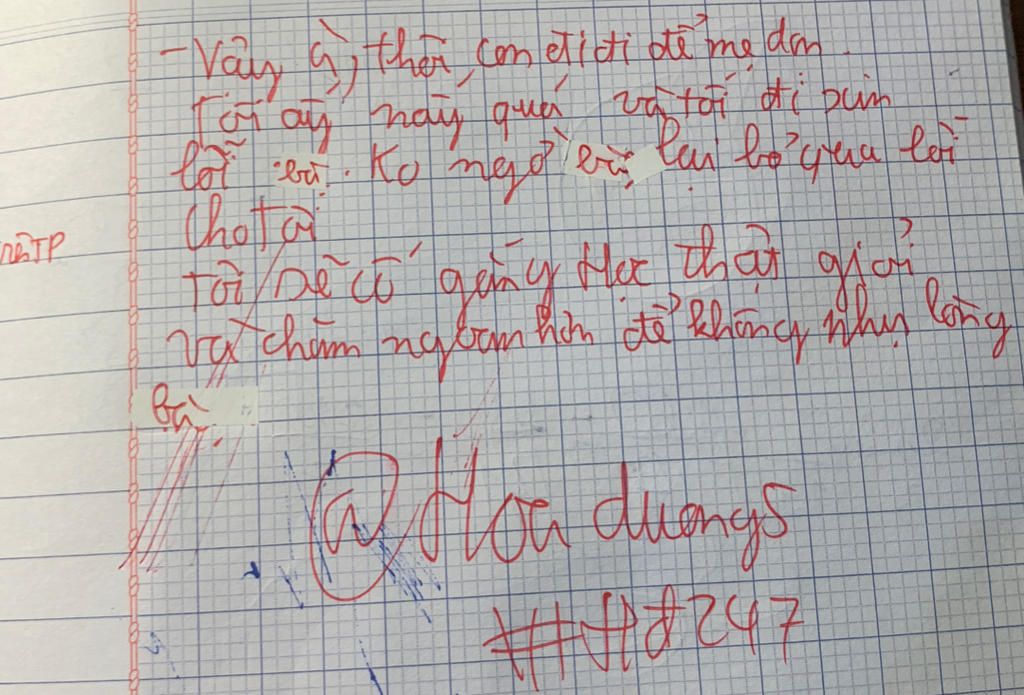 - Vậy, ạ, thôi, con đi đi để mẹ dọn.
Tôi áy náy quá và tôi đi xin
lỗi bà. Ko ngờ bà lại bỏ qua lỗi
cho Tôi
Tôi sẽ cố gắng Học thật giỏi
và chăm ngoan hơn để không phụ lòng
Bà
@Hoa duong5
##247